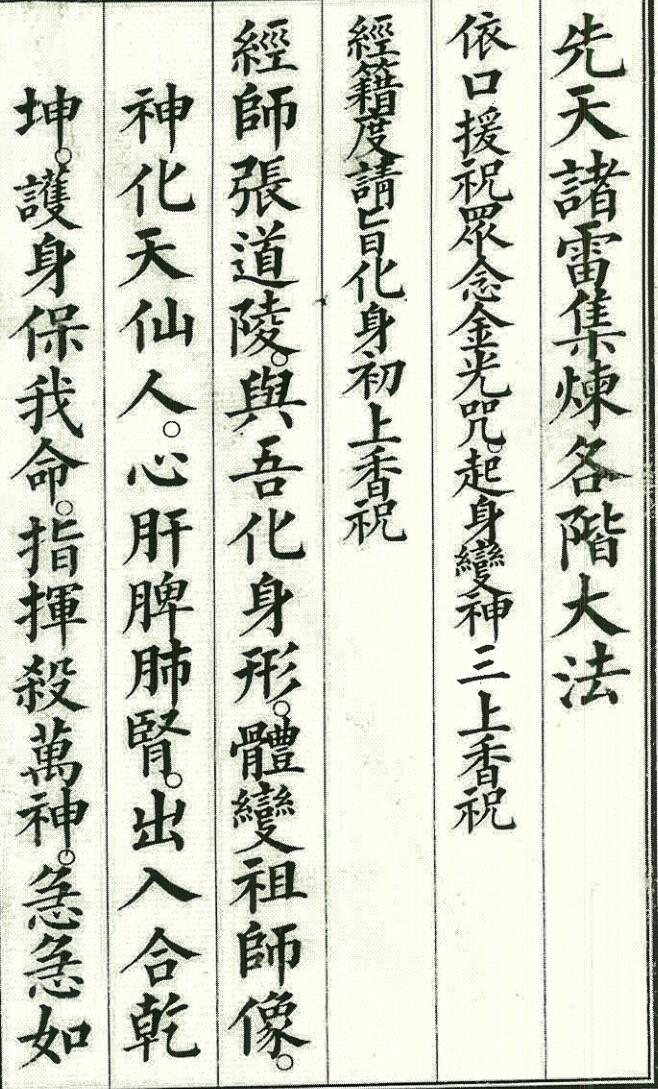 先天諸雷集煉各階大法
依口援祝眾念金光咒。起身變神三上香祝
經籍度請旨化身初上香祝
經師張道陵。與吾化身形。體變祖師像。
神化天仙人。心肝脾肺腎。出入合乾
坤。護身保我命。指揮殺萬神。急急如